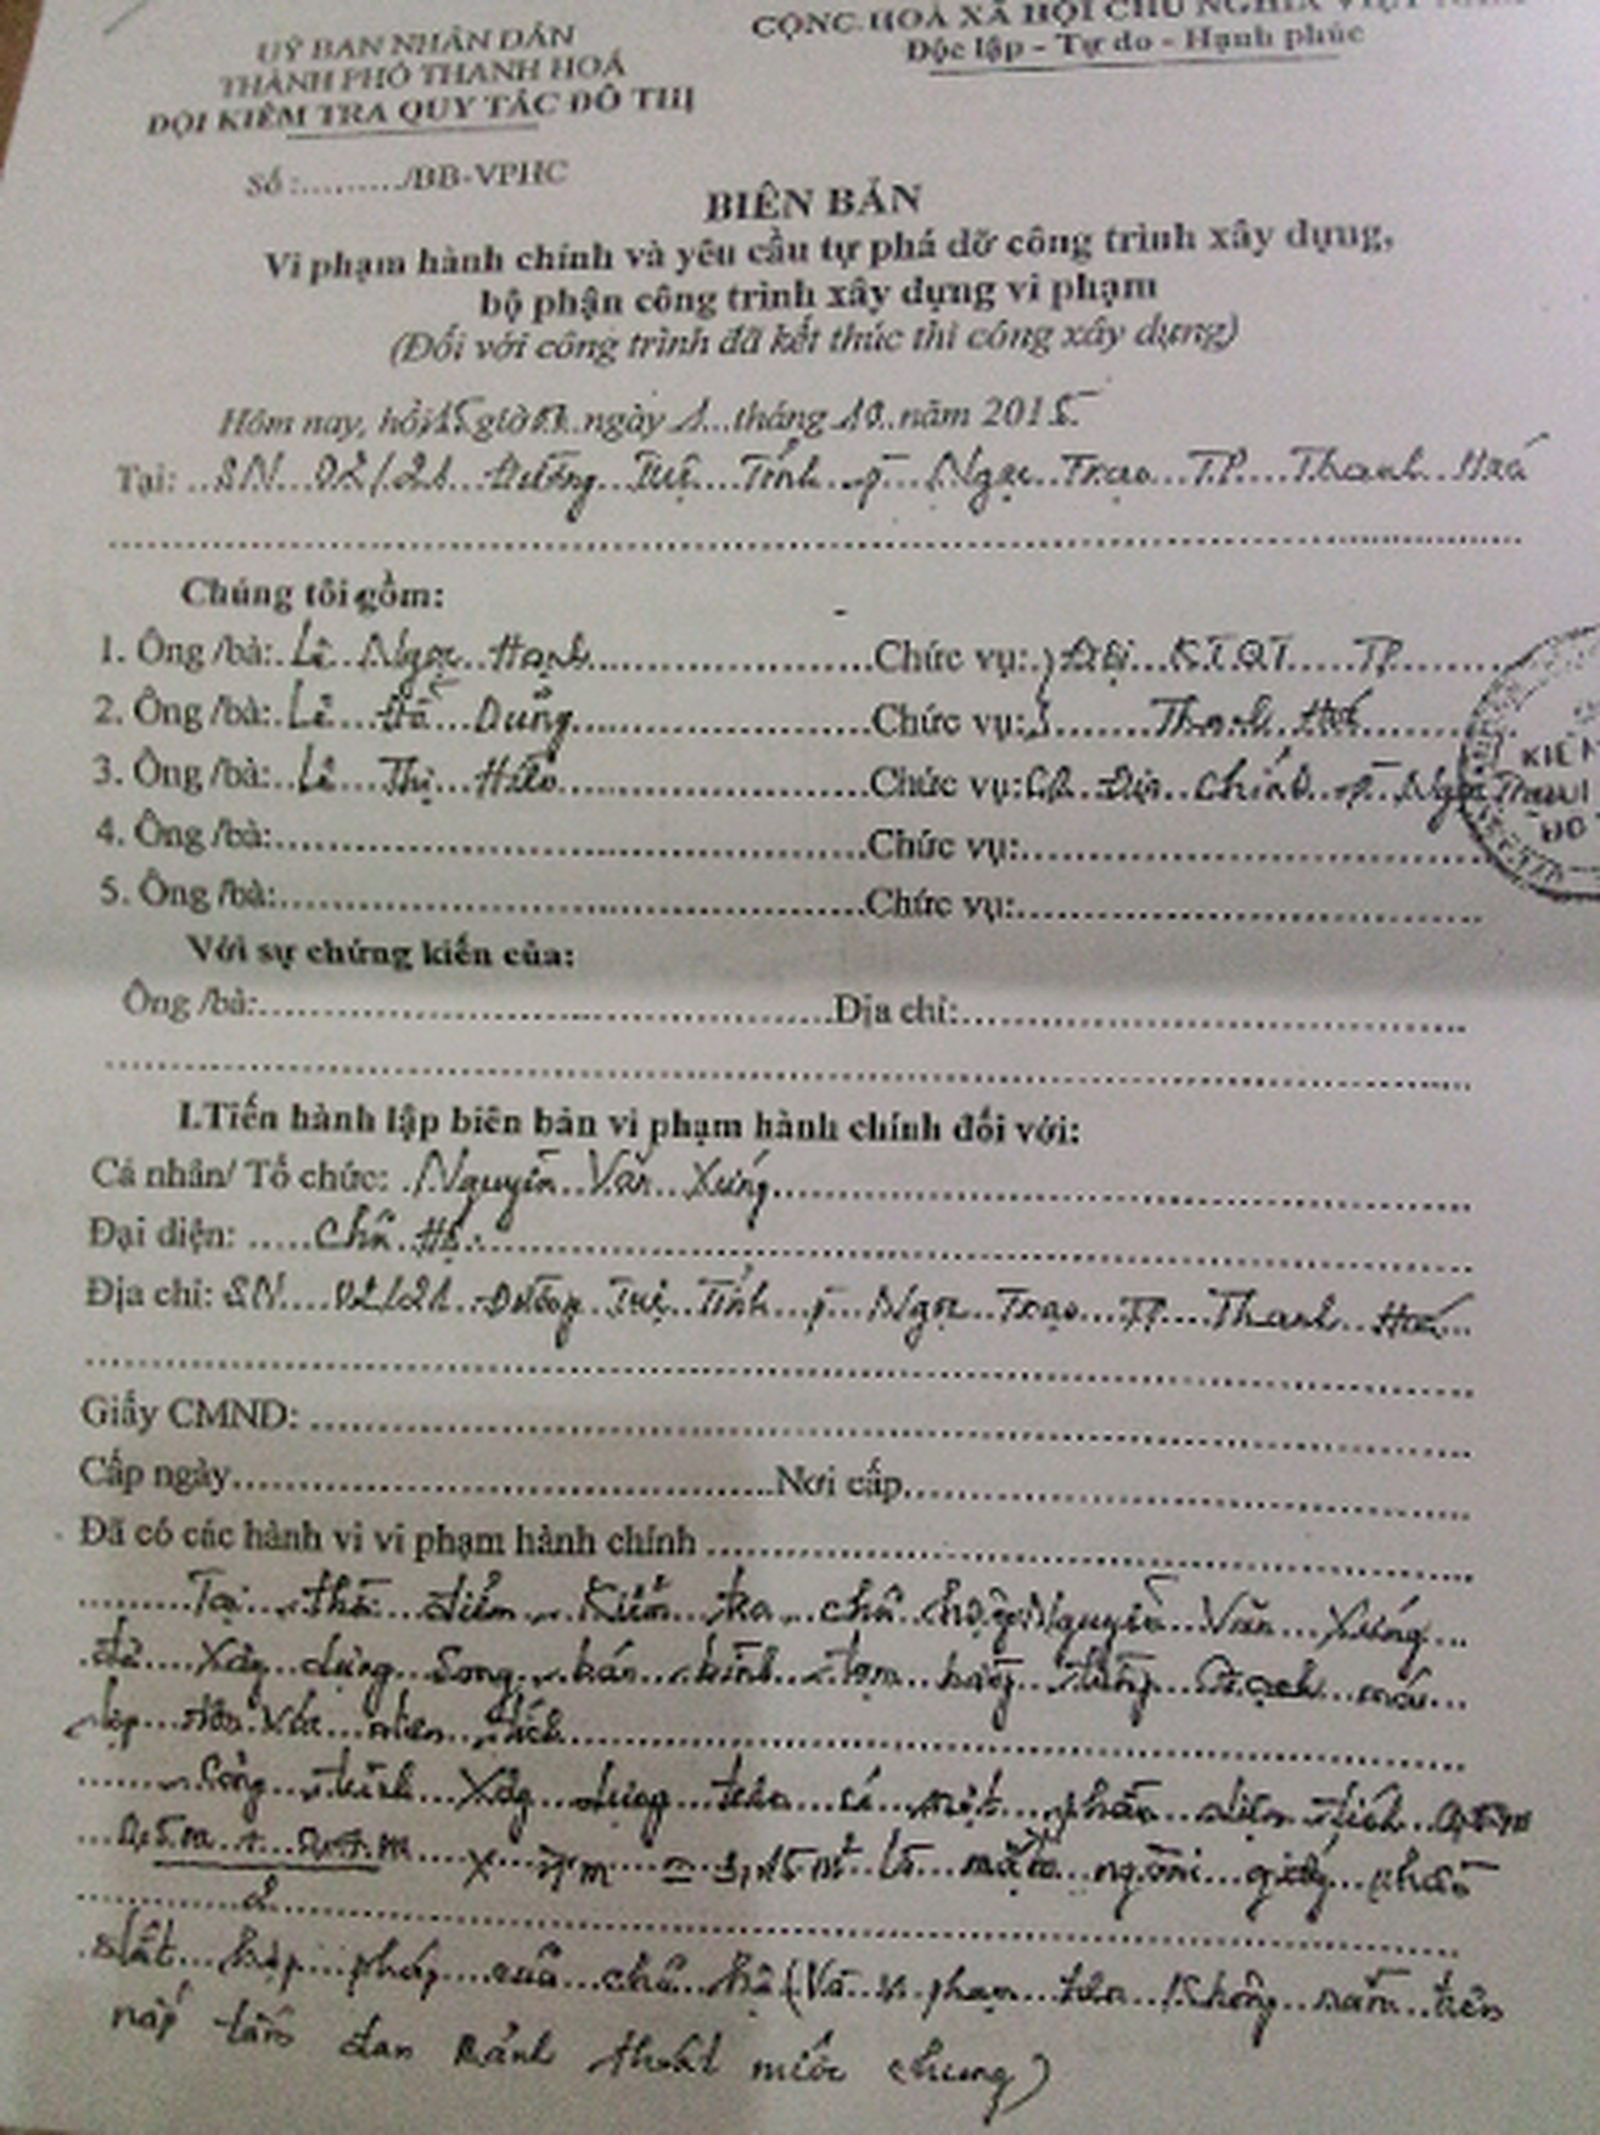 UỶ BAN NHÂN DÂN
THÀNH PHỐ THANH HOÁ
ĐỘI KIỂM TRA QUY TẮC ĐÔ THỊ
CỘNG HOÀ XÃ HỘI CHỦ NGHĨA VIỆT NAM
Độc lập - Tự do - Hạnh phúc
Số :........./BB-VPHC
BIÊN BẢN
Vi phạm hành chính và yêu cầu tự phá dỡ công trình xây dựng,
bộ phận công trình xây dựng vi phạm
(Đối với công trình đã kết thúc thi công xây dựng)
Hôm nay, hồi 15 giờ ngày 1 tháng 10 năm 2015
Tại: SN 02/21 Đường Tuệ Tĩnh P Ngọc Trạo TP Thanh Hoá
Chúng tôi gồm:
1. Ông /bà: Lê Ngọc Hạnh Chức vụ: Đội KTQT TP
2. Ông /bà: Lê Dũng Chức vụ: Thanh Hoá
3. Ông /bà: Lê Thị Chức vụ: CB Địa chính P Ngọc Trạo
4. Ông /bà: Chức vụ:
5. Ông /bà: Chức vụ:
KIỂM
ĐÔ
Với sự chứng kiến của:
Ông /bà: Địa chỉ:
I.Tiến hành lập biên bản vi phạm hành chính đối với:
Cá nhân/ Tổ chức: Nguyễn Văn Xứng
Đại diện: Chủ Hộ
Địa chỉ: SN 02/21 Đường Tuệ Tĩnh P Ngọc Trạo TP Thanh Hoá
Giấy CMND:
Cấp ngày Nơi cấp
Đã có các hành vi vi phạm hành chính
Tại thời điểm kiểm tra chủ hộ Nguyễn Văn Xứng
đã xây dựng song bán bình tạm bằng tường gạch mái
lợp diện tích
Công trình xây dựng trên có một phần diện tích
x 7m = 3,15 m² là nằm ngoài giấy phần
2
đất hợp pháp của chủ hộ ( vi phạm trên không nằm trên
nắp tấm đan rảnh thoát nước chung)